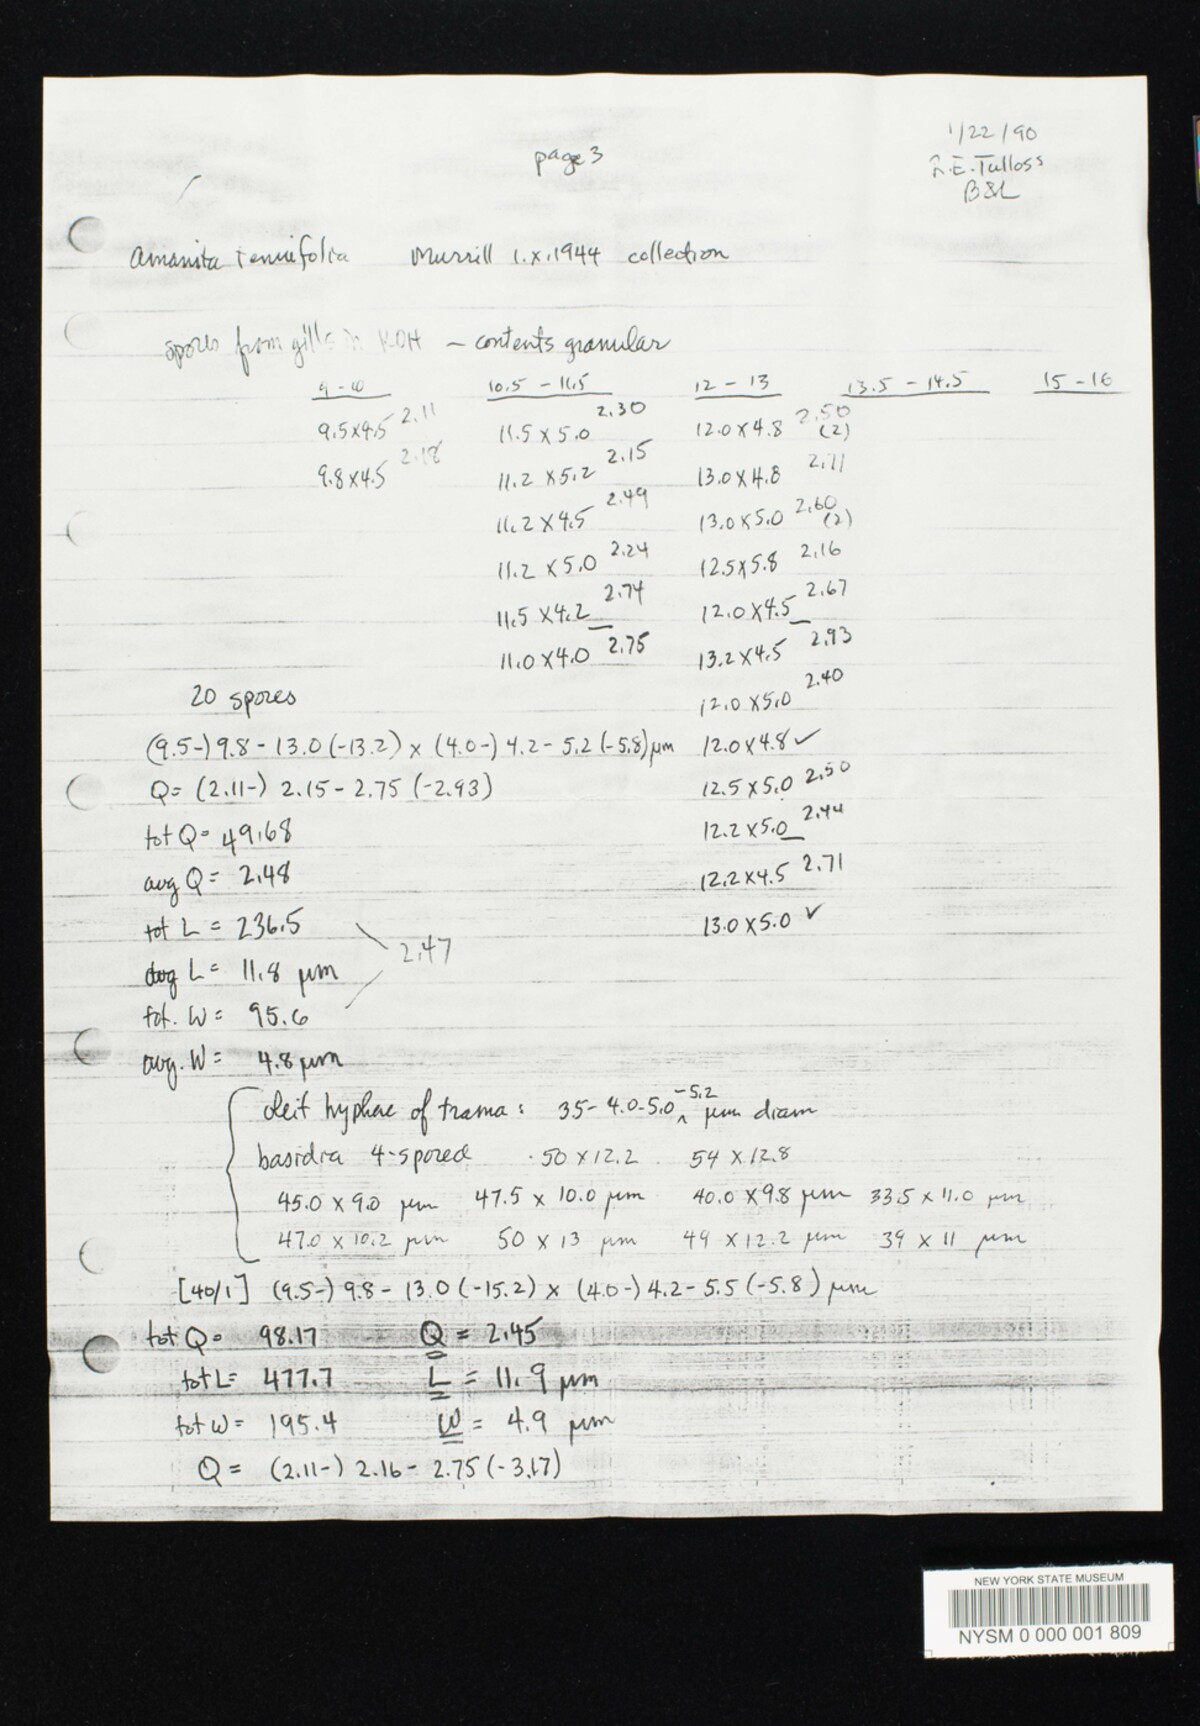 1/22/90
page 3
R.E. Tulloss
B&L
Amanita tenuifolia Murrill 1.x.1944 collection
spores from gills in KOH – contents granular
9-10 10.5 - 11.5 12 - 13 13.5 - 14.5 15 - 16
9.5x4.5 2.11 11.5 x 5.0 2.30 12.0 x 4.8 2.50 (2)
9.8x4.5 2.18 11.2 x 5.2 2.15 13.0 x 4.8 2.71
11.2 x 4.5 2.49 13.0 x 5.0 2.60 (2)
11.2 x 5.0 2.24 12.5 x 5.8 2.16
11.5 x 4.2 2.74 12.0 x 4.5 2.67
11.0 x 4.0 2.75 13.2 x 4.5 2.93
20 spores 12.0 x 5.0 2.40
(9.5-) 9.8 - 13.0 (-13.2) x (4.0-) 4.2 - 5.2 (-5.8) µm 12.0 x 4.8 ✓
Q= (2.11-) 2.15 - 2.75 (-2.93) 12.5 x 5.0 2.50
tot Q= 49.68 12.2 x 5.0 2.44
avg Q= 2.48 12.2 x 4.5 2.71
tot L = 236.5 13.0 x 5.0 ✓
avg L= 11.8 µm 2.47
tot. W= 95.6
avg. W= 4.8 µm
cleit hyphae of trama: 35 - 4.0 - 5.0 -5.2 µm diam
basidia 4-spored 50 x 12.2 54 x 12.8
45.0 x 9.0 µm 47.5 x 10.0 µm 40.0 x 9.8 µm 33.5 x 11.0 µm
47.0 x 10.2 µm 50 x 13 µm 49 x 12.2 µm 39 x 11 µm
[40/1] (9.5-) 9.8 - 13.0 (-15.2) x (4.0-) 4.2 - 5.5 (-5.8) µm
tot Q= 98.17 Q = 2.45
tot L= 477.7 L = 11.9 µm
tot W= 195.4 W = 4.9 µm
Q = (2.11-) 2.16 - 2.75 (-3.17)
NEW YORK STATE MUSEUM
NYSM 0 000 001 809